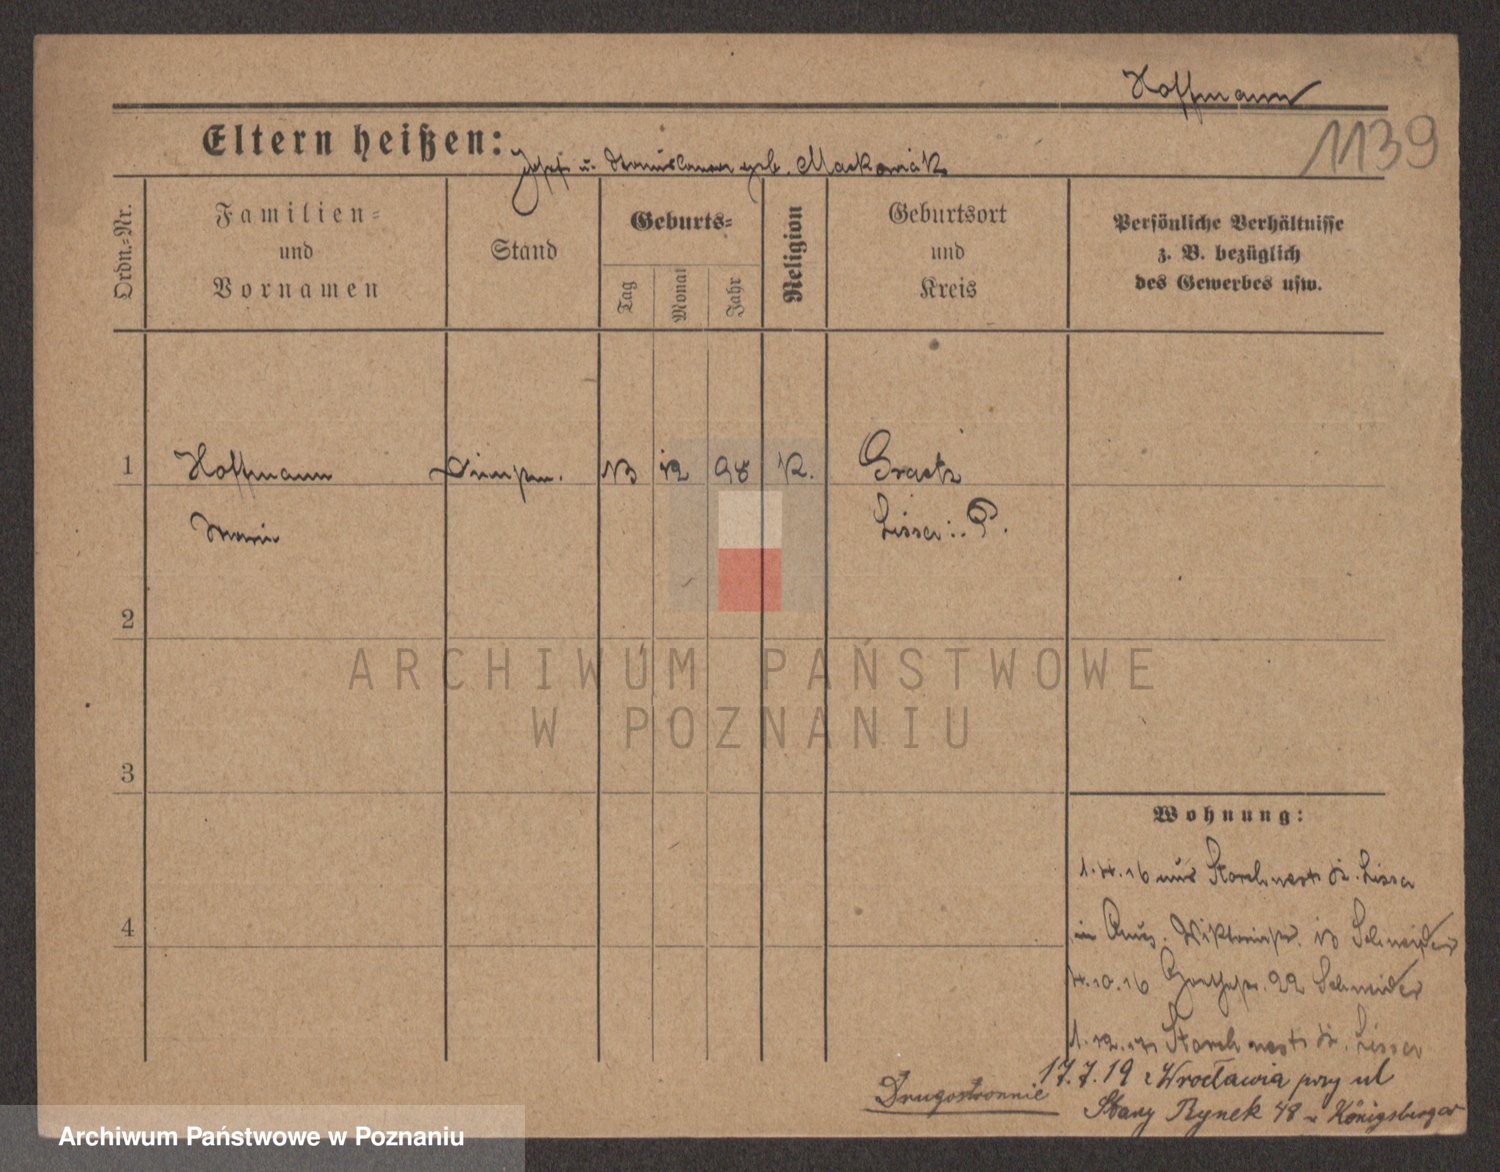 Hoffmann
1139
Eltern heißen: Josef u. Stanislawa geb. Maćkowiak
Ordn.-Nr.
Familien-
und
Vornamen
Stand
Geburts-
Tag
Monat
Jahr
Religion
Geburtsort
und
Kreis
Persönliche Verhältnisse
z. B. bezüglich
des Gewerbes usw.
1 Hoffmann 12 98 K.
Marie Lissa i. P.
2
3
4
ARCHIWUM PAŃSTWOWE
W POZNANIU
Wohnung:
Storchnest Kr. Lissa
in Schneider
4.10.16 22 Schneider
Storchnest Kr. Lissa
17.7.19 z Wrocławia przy ul
Drugostronnie
Stary Rynek 48 u Königsberger
Archiwum Państwowe w Poznaniu